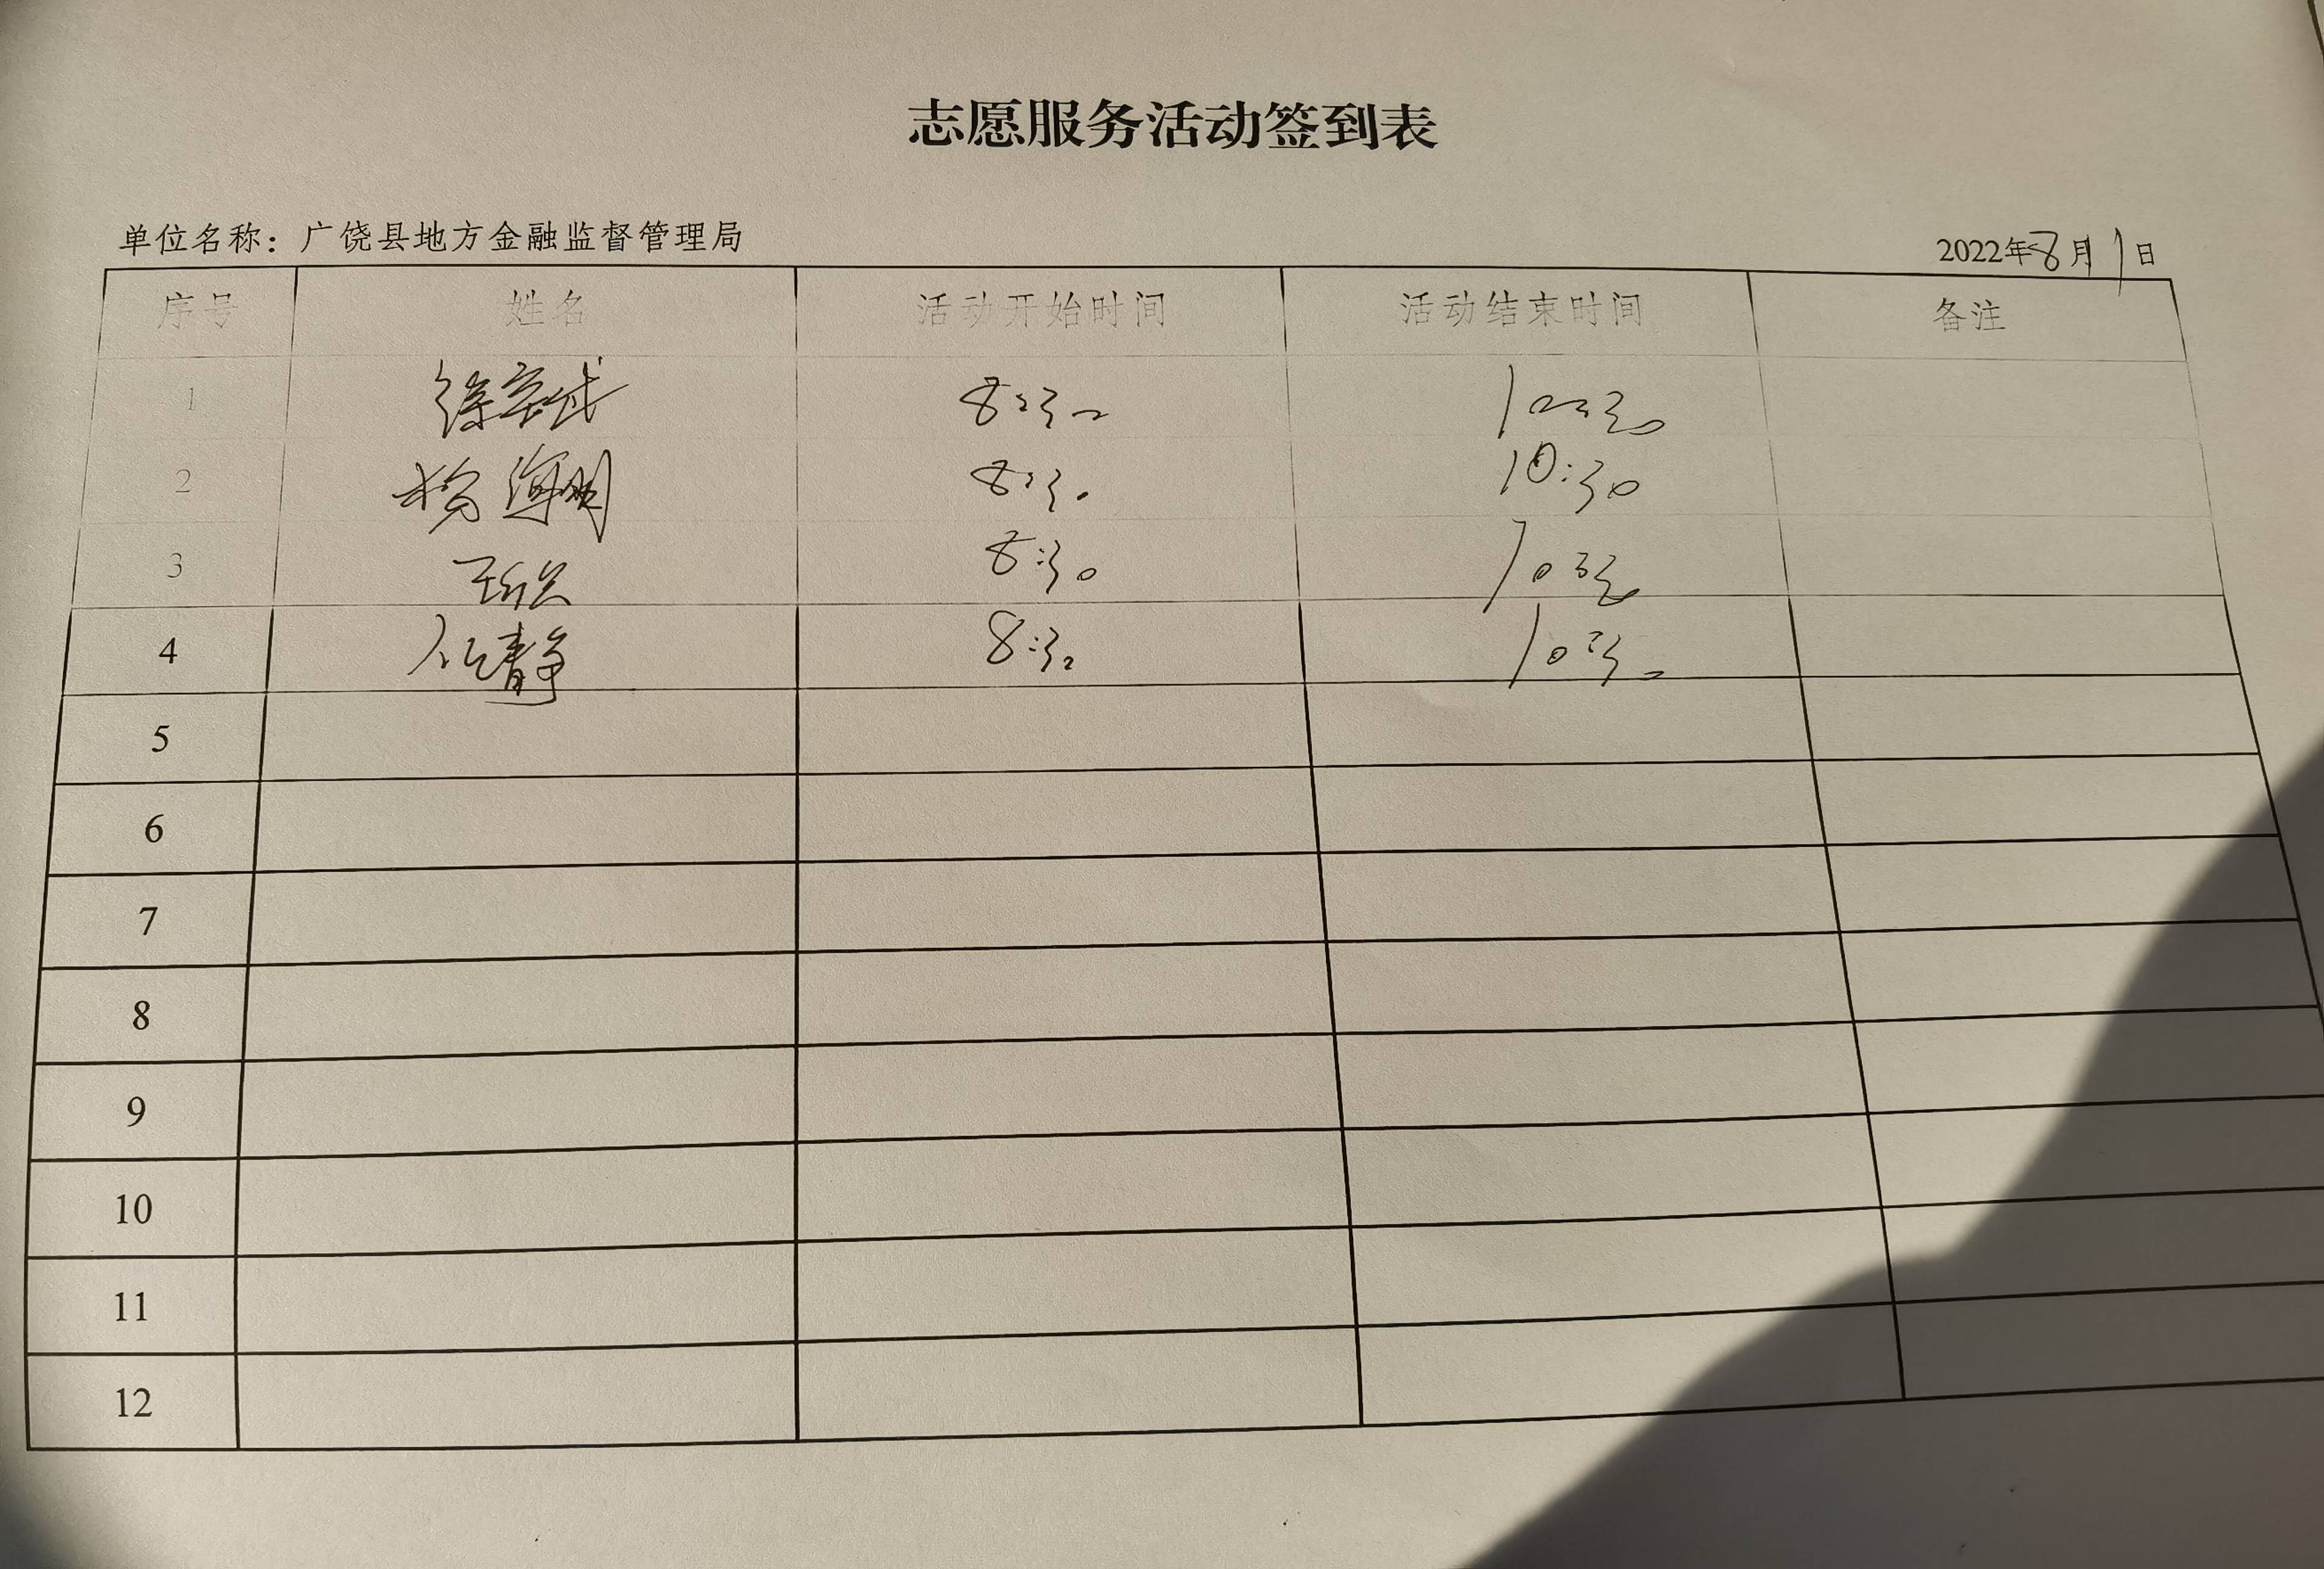 志愿服务活动签到表
单位名称：广饶县地方金融监督管理局 2022年8月1日
序号 姓名 活动开始时间 活动结束时间 备注
1 8:30 10:30
2 8:30 10:30
3 8:30 10:30
4 任静 8:30 10:30
5
6
7
8
9
10
11
12